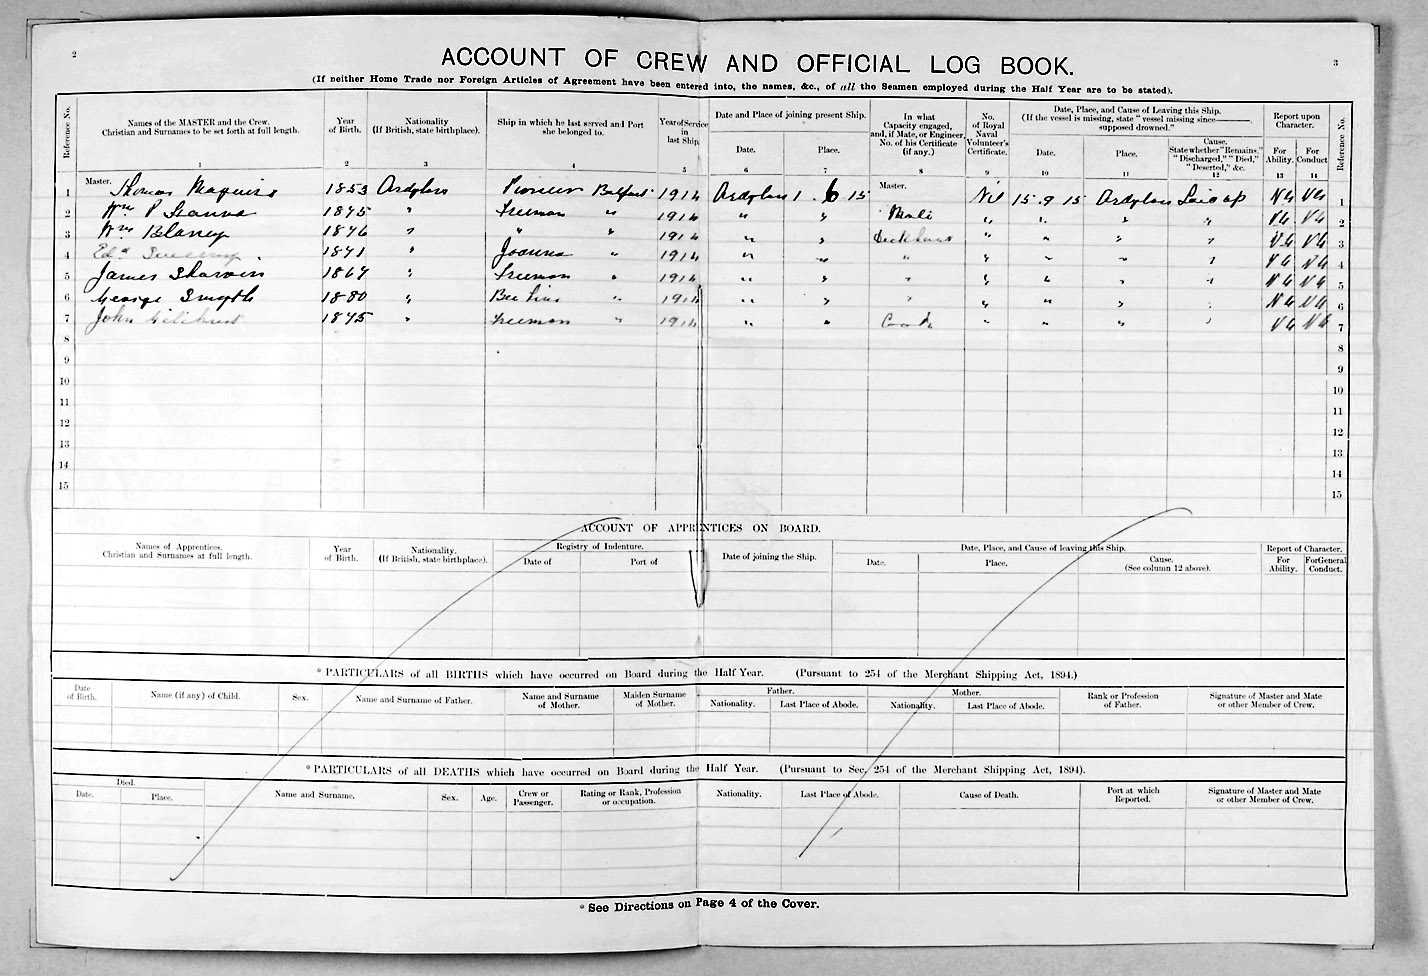 2
3
ACCOUNT OF CREW AND OFFICIAL LOG BOOK.
(If neither Home Trade nor Foreign Articles of Agreement have been entered into, the names, &c., of all the Seamen employed during the Half Year are to be stated).
Reference No. Names of the MASTER and the Crew. Christian and Surnames to be set forth at full length. Year of Birth. Nationality (If British, state birthplace). Ship in which he last served and Port she belonged to. Year of Service in last Ship. Date and Place of joining present Ship. Date. Place. In what Capacity engaged, and, if Mate, or Engineer, No. of his Certificate (if any). No. of Royal Naval Volunteer's Certificate. Date, Place, and Cause of Leaving this Ship. (If the vessel is missing, state "vessel missing since———, supposed drowned." Date. Place. Cause. State whether "Remains," "Discharged," "Died," "Deserted," &c. Report upon Character. For Ability. For Conduct Reference No.
1 2 3 4 5 6 7 8 9 10 11 12 13 14
1 Master. Thomas Maguire 1853 Ardglass Pioneer Belfast 1914 Ardglass 1 . 6 15 Master. Nil 15 . 9 15 Ardglass Laid up VG VG 1
2 Wm P 1875 " Freeman " 1914 " " " " " " VG VG 2
3 Wm Blaney 1876 " " " 1914 " " Deckhand " " " " VG VG 3
4 Edd 1871 " Joanna " 1914 " " " " " " " VG VG 4
5 James 1867 " Freeman " 1914 " " " " " " " VG VG 5
6 George Smyth 1880 " Bee Line " 1914 " " " " " " " VG VG 6
7 John 1875 " Freeman " 1914 " " Cook " " " " VG VG 7
8 8
9 9
10 10
11 11
12 12
13 13
14 14
15 15
ACCOUNT OF APPRENTICES ON BOARD.
Names of Apprentices. Christian and Surnames at full length. Year of Birth. Nationality. (If British, state birthplace). Registry of Indenture. Date of Port of Date of joining the Ship. Date, Place, and Cause of leaving this Ship. Date. Place. Cause. (See column 12 above). Report of Character. For Ability. For General Conduct.
* PARTICULARS of all BIRTHS which have occurred on Board during the Half Year. (Pursuant to 254 of the Merchant Shipping Act, 1894.)
Date of Birth. Name (if any) of Child. Sex. Name and Surname of Father. Name and Surname of Mother. Maiden Surname of Mother. Father. Nationality. Last Place of Abode. Mother. Nationality. Last Place of Abode. Rank or Profession of Father. Signature of Master and Mate or other Member of Crew.
* PARTICULARS of all DEATHS which have occurred on Board during the Half Year. (Pursuant to Sec. 254 of the Merchant Shipping Act, 1894).
Died. Date. Place. Name and Surname. Sex. Age. Crew or Passenger. Rating or Rank, Profession or occupation. Nationality. Last Place of Abode. Cause of Death. Port at which Reported. Signature of Master and Mate or other Member of Crew.
* See Directions on Page 4 of the Cover.